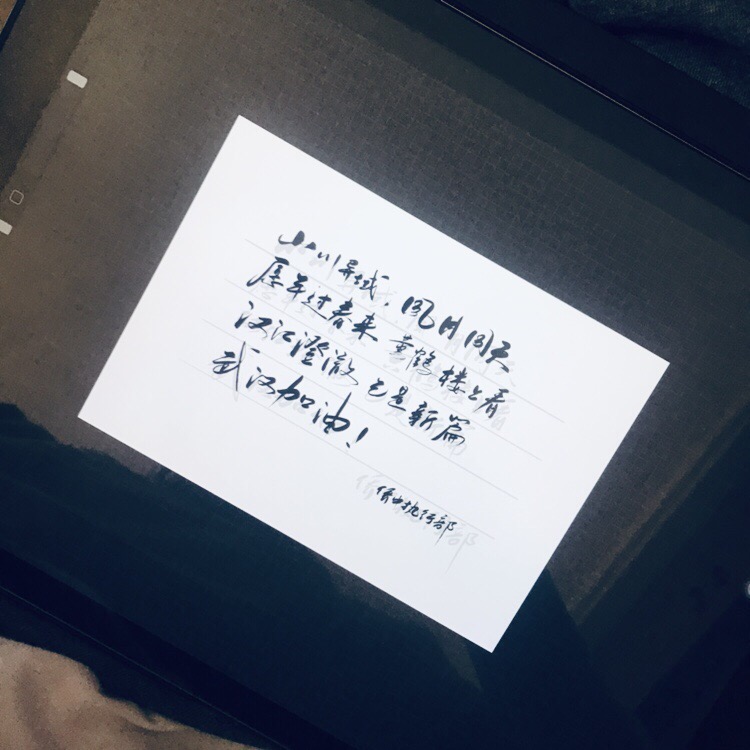 山川异域，风月同天
辰年过春来 黄鹤楼上看
汉江澄澈 已是新篇
武汉加油！
执行部